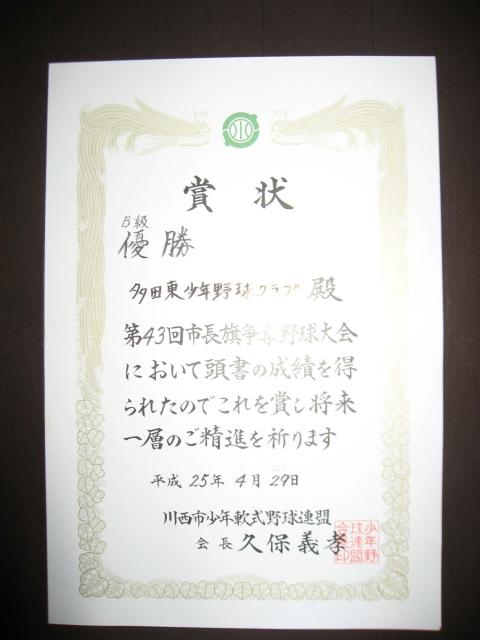 賞状
B級
優勝
多田東少年野球クラブ 殿
第43回市長旗争奪野球大会
において頭書の成績を得
られたのでこれを賞し将来
一層のご精進を祈ります
平成 25年 4月 29日
川西市少年軟式野球連盟
会長 久保義孝